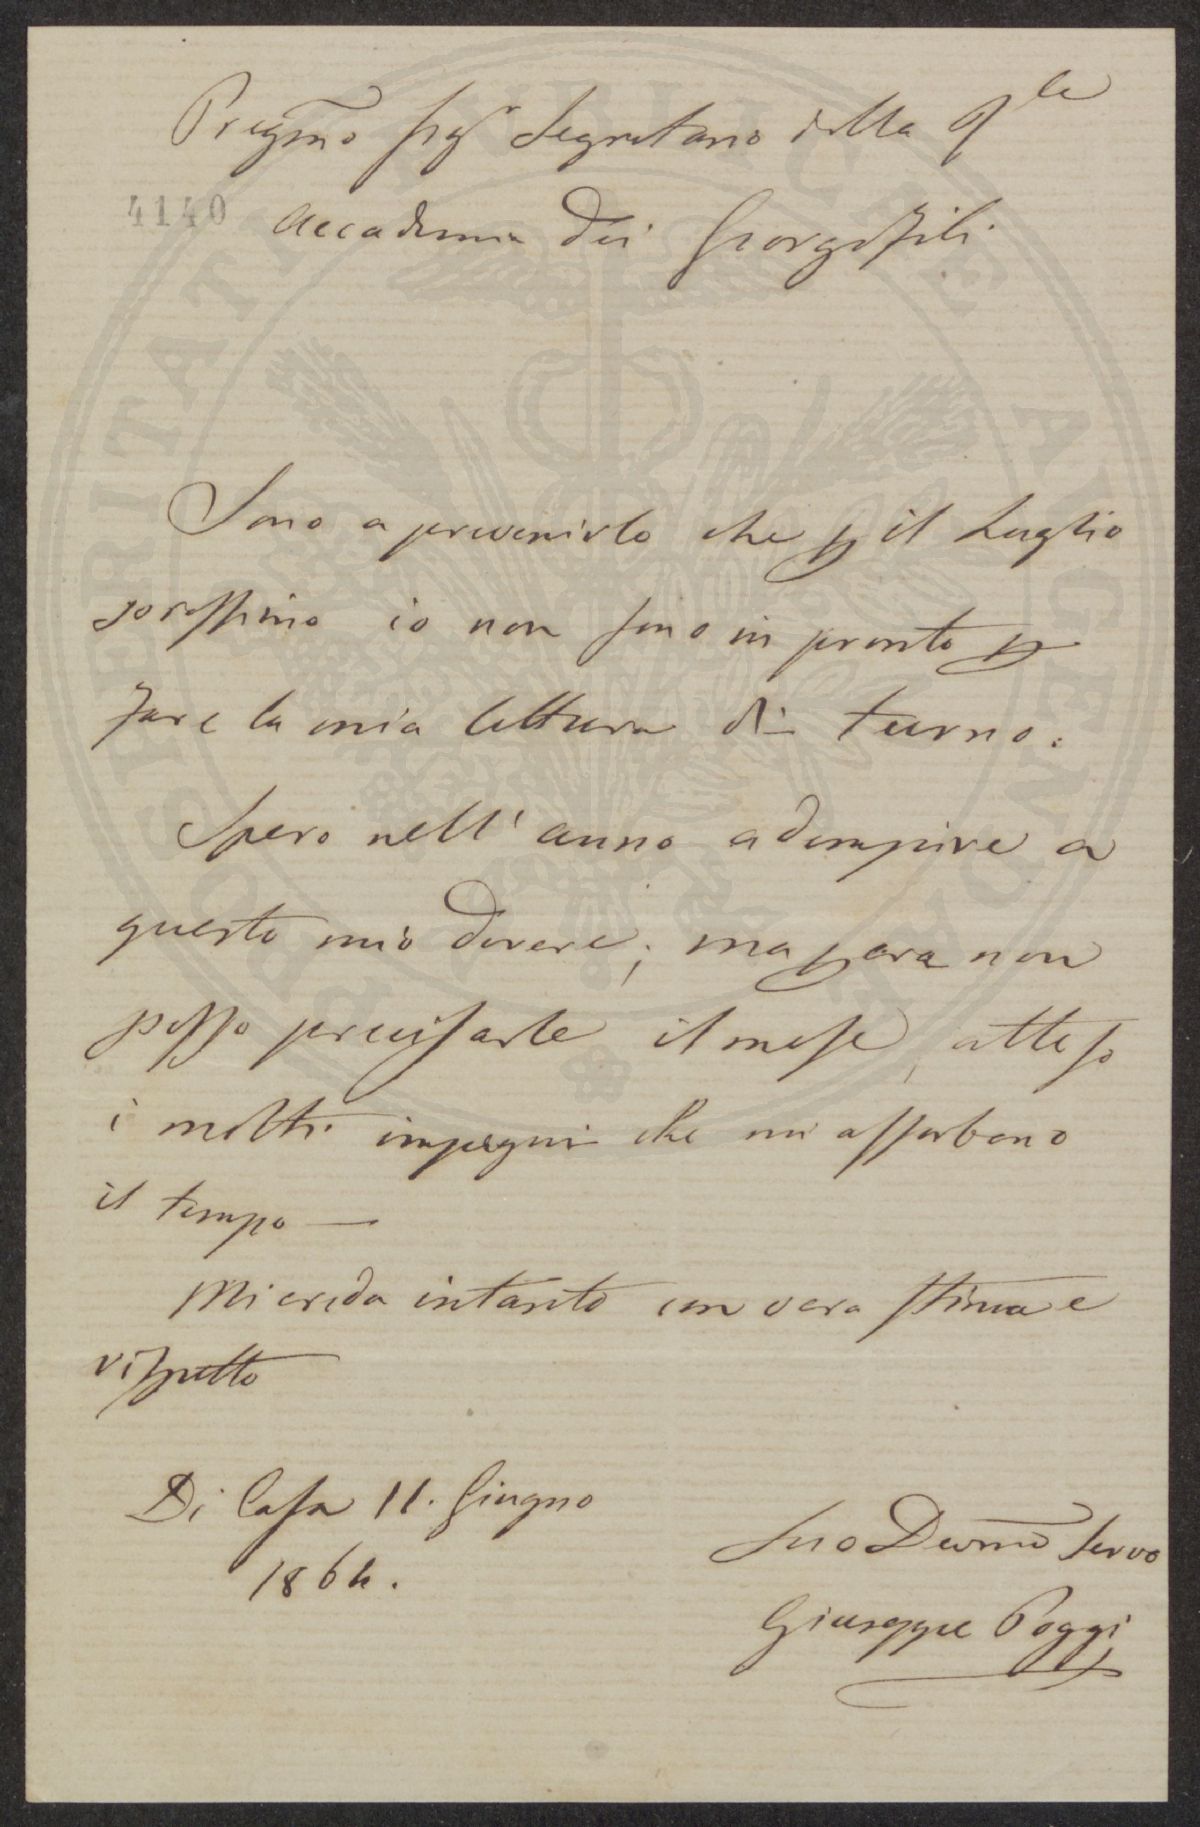 Pregmo Sigr Segretario della Rle
4140
Accademia dei Georgofili
Sono a prevenirlo che p il Luglio
prossimo io non sono in pronto p
fare la mia lettura di turno.
Spero nell'anno adempire a
questo mio dovere; ma p ora non
posso precisarle il mese, atteso
i molti impegni che mi assorbono
il tempo —
Mi creda intanto con vera stima e
rispetto
Di Casa 11. Giugno
1864.
Suo Devmo Servo
Giuseppe Poggi
PROSPERITATI PUBLICAE AUGENDAE